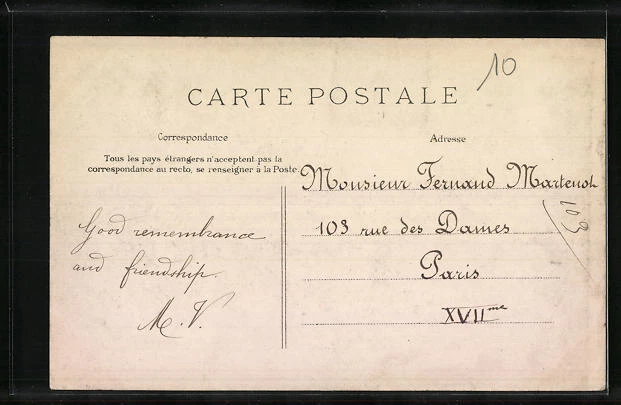 10
CARTE POSTALE
Correspondance
Adresse
Tous les pays étrangers n'acceptent pas la
correspondance au recto, se renseigner à la Poste.
Monsieur Fernand Martenot
103 rue des Dames
Paris
XVII me
103
Good remembrance
and friendship.
M. V.